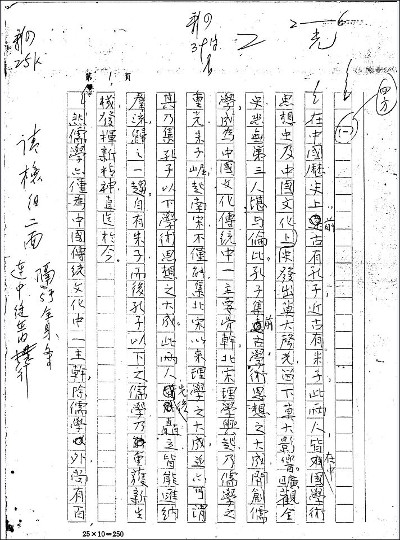 2—6
(一)
在中國歷史上前古有孔子近古有朱子此兩人皆在中國學術
思想史及中國文化史上發出莫大聲光留下莫大影響曠觀全
史恐無第三人堪與倫比孔子集前古學術思想之大成開創儒
學成為中國文化傳統中一主要骨幹北宋理學興起乃儒學之
重光朱子崛起南宋不僅能集北宋以來理學之大成並亦可謂
其乃集孔子以下學術思想之大成此兩人先後矗立皆能匯納
羣流歸之一趨自有朱子而後孔子以下之儒學乃重獲新生
機發揮新精神直迄於今
第1頁
然儒學亦僅為中國傳統文化中一主幹除儒學外尚有百
25×10=250